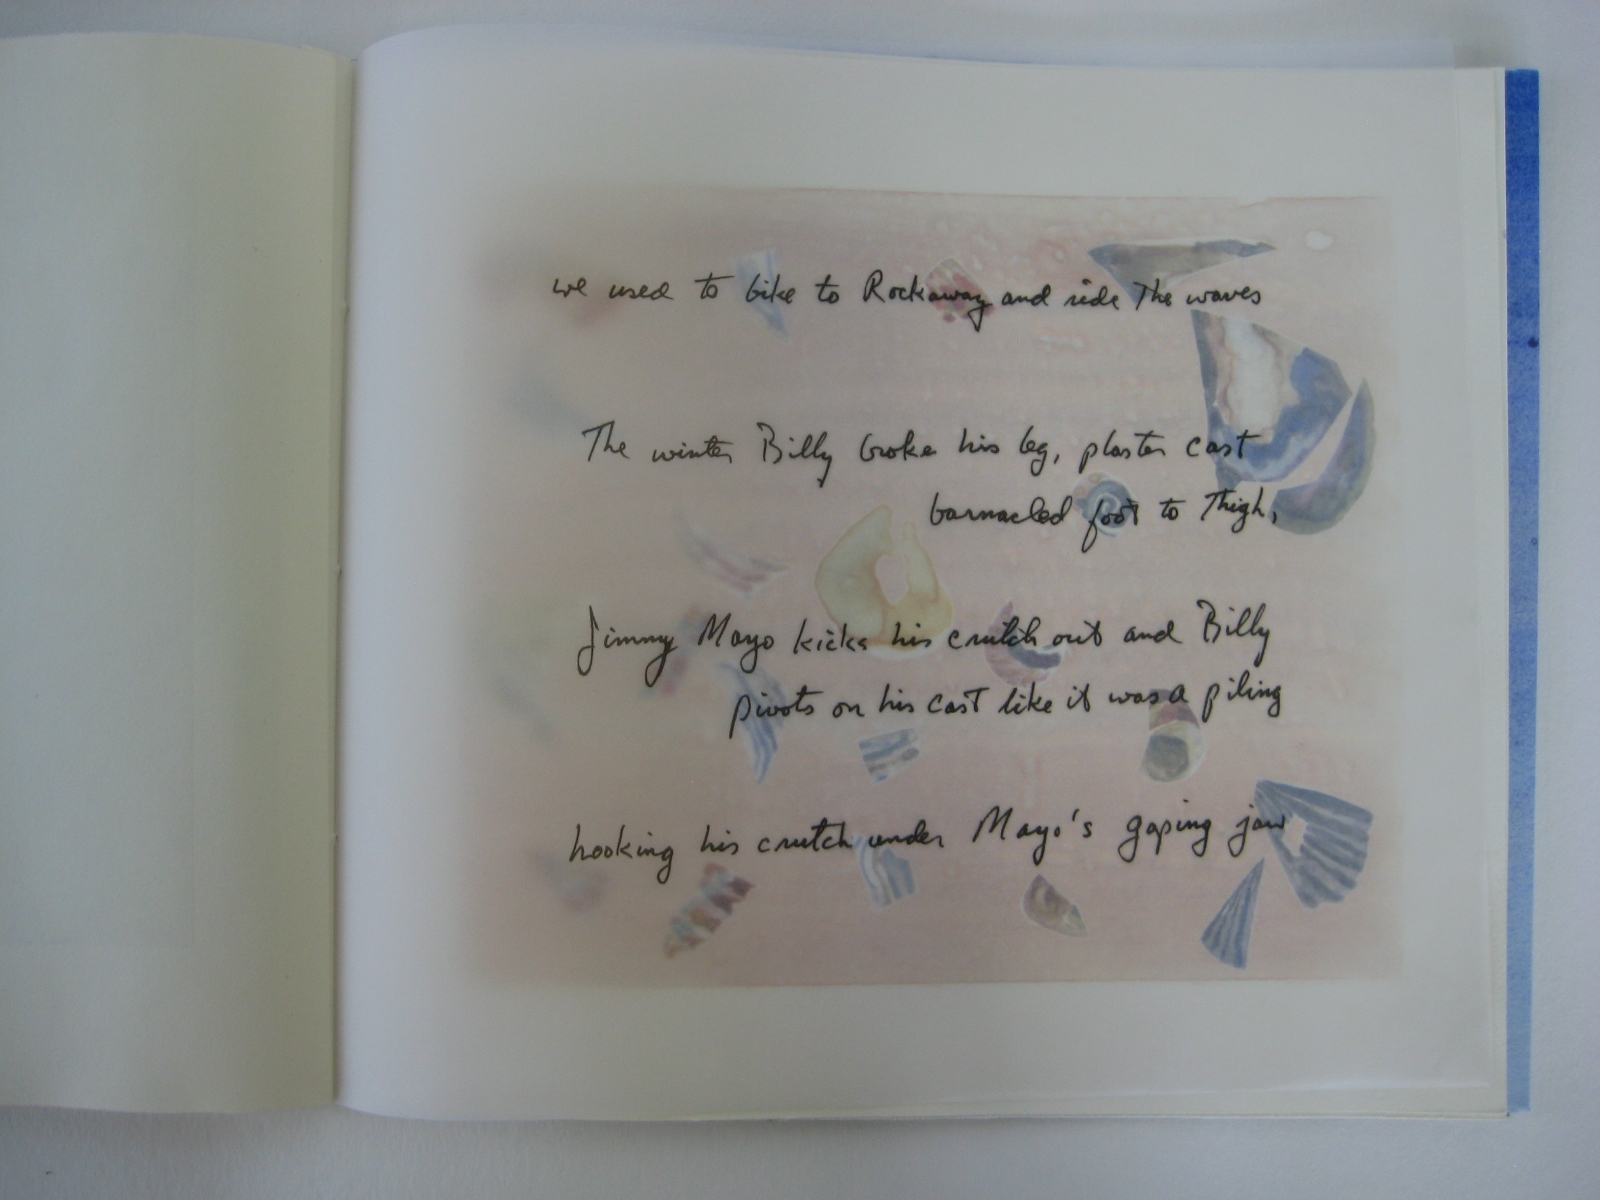 we used to bike to Rockaway and ride The waves
The winter Billy broke his leg, plaster cast
barnacled foot to Thigh,
Jimmy Mayo kicks his crutch out and Billy
pivots on his cast like it was a piling
hooking his crutch under Mayo's gaping jaw